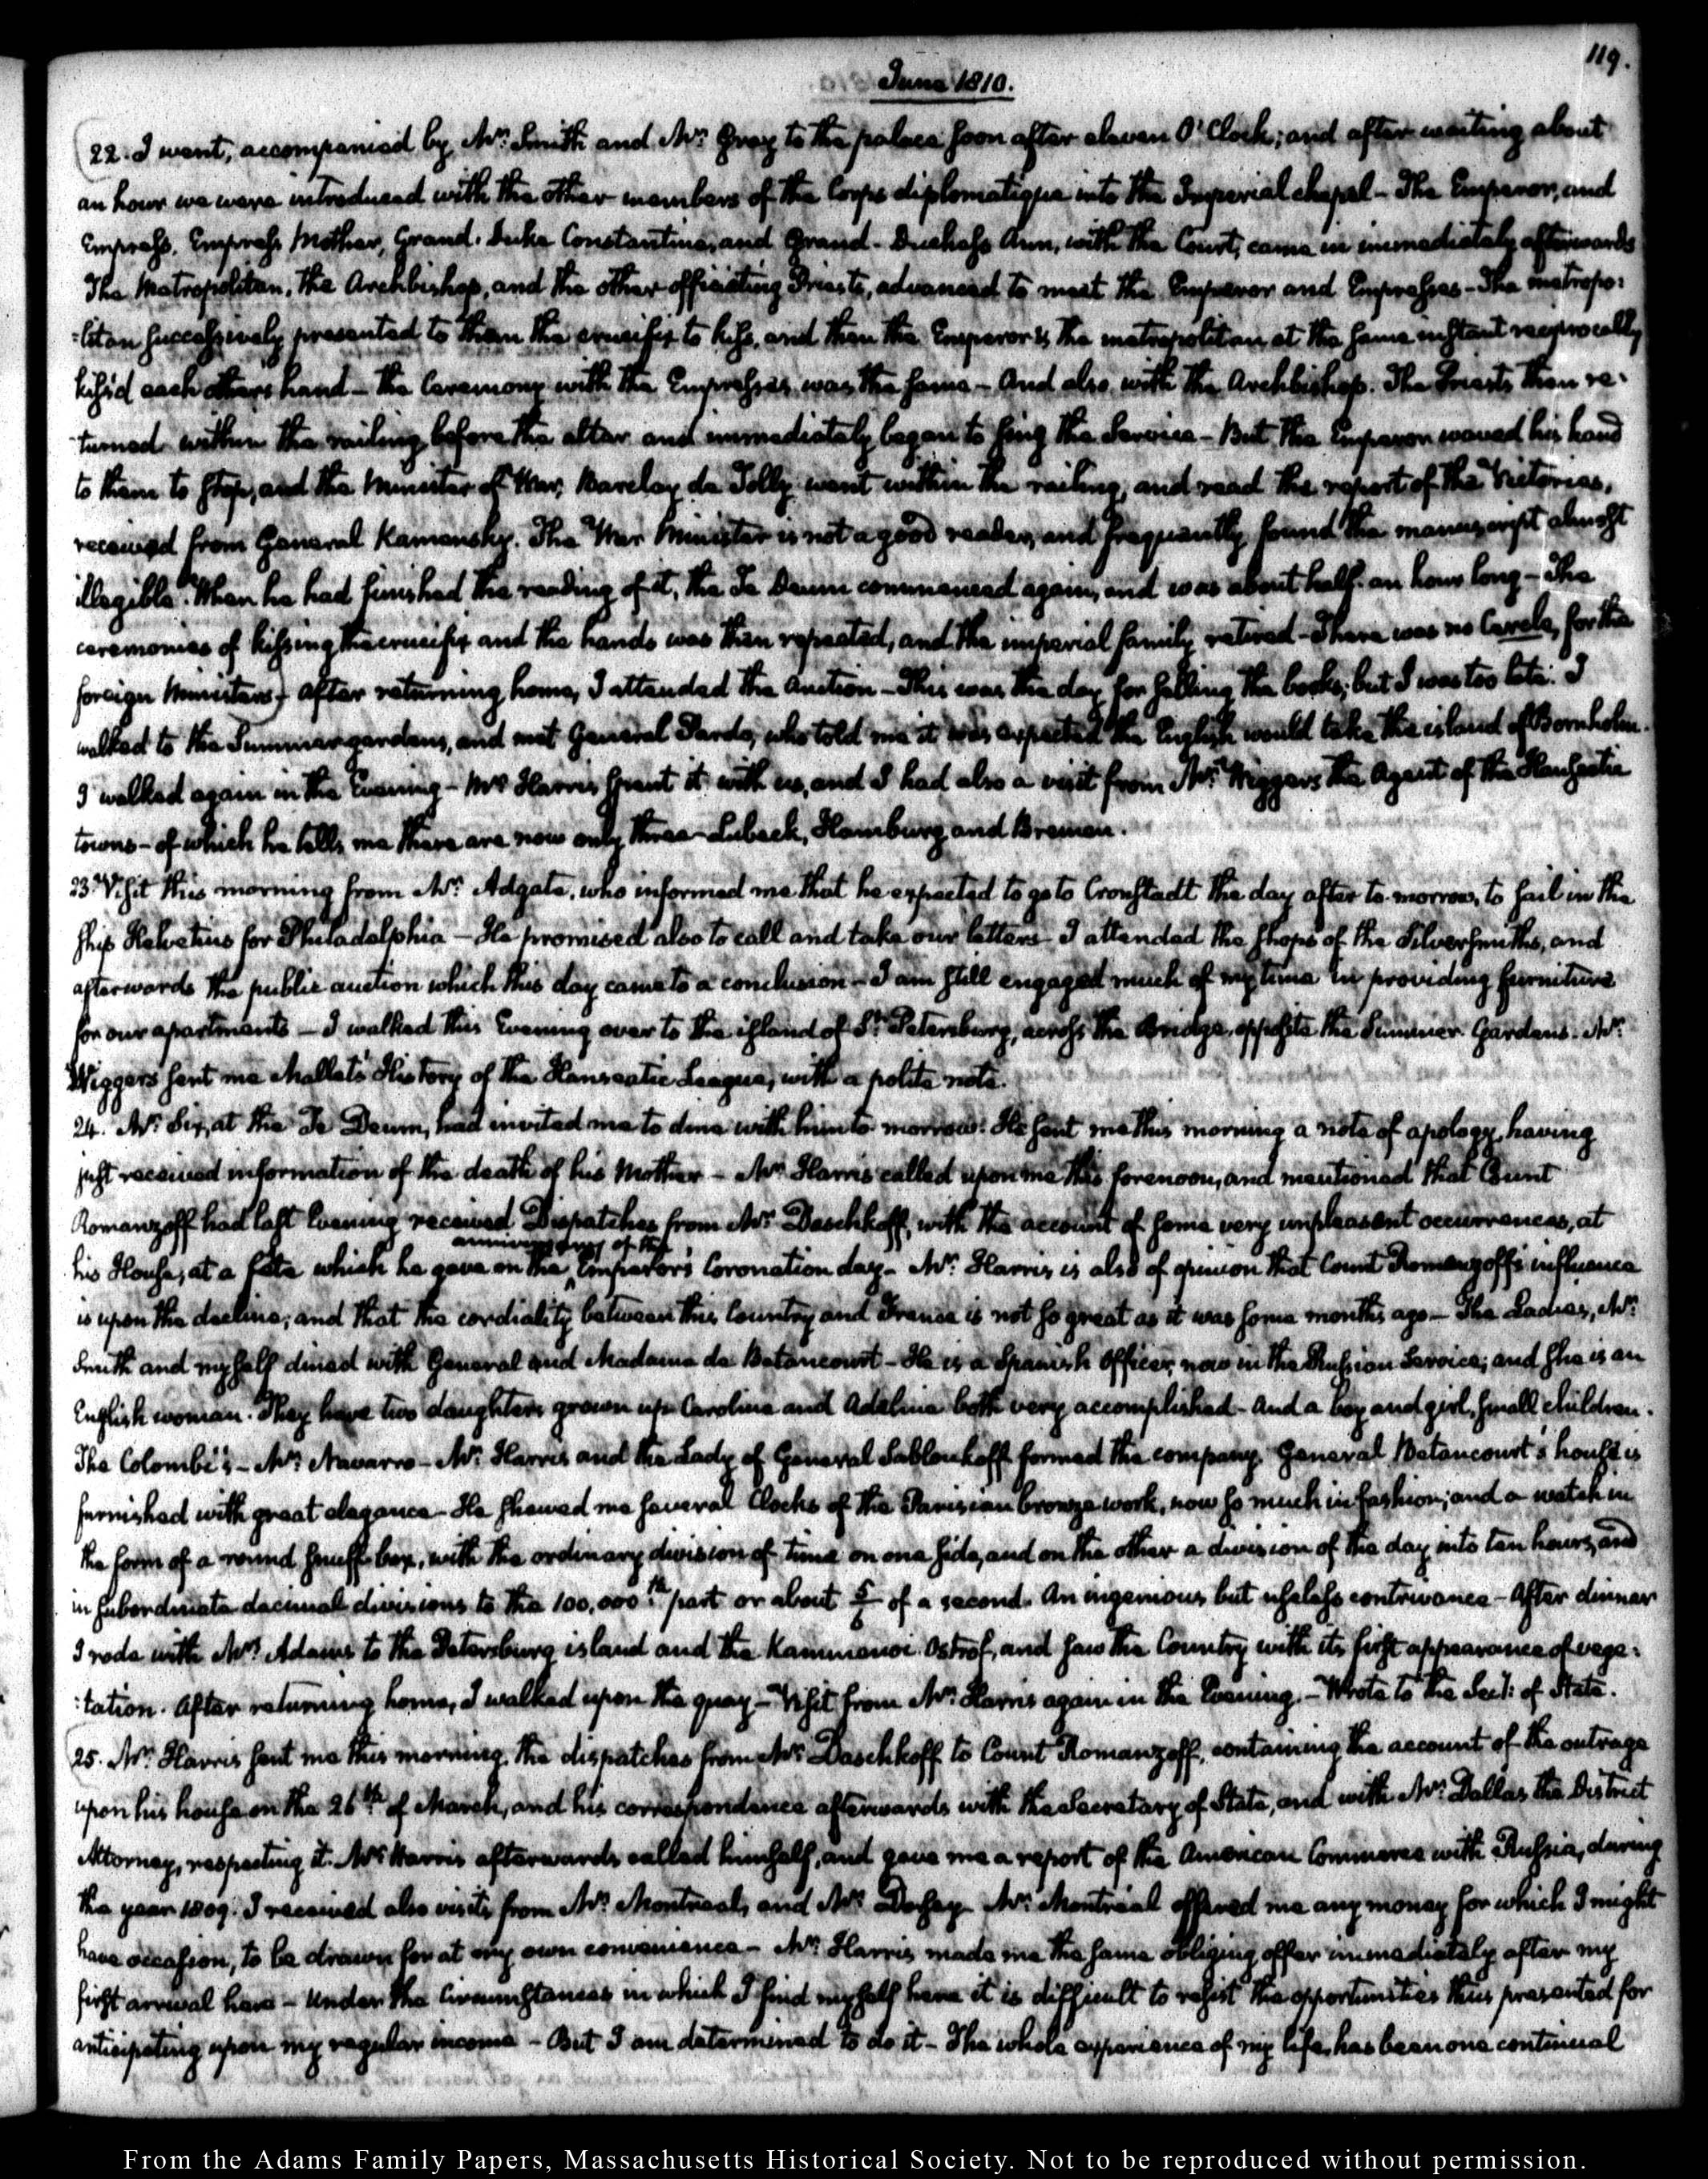 119.
June 1810.
22. I went, accompanied by Mr: Smith and Mr: Gray to the palace soon after eleven O'Clock; and after waiting about
an hour we were introduced with the other members of the Corps diplomatique into the Imperial chapel – The Emperor, and
Empress, Empress Mother, Grand-Duke Constantine, and Grand-Duchess Ann, with the Court, came in immediately afterwards
The Metropolitan, the Archbishop, and the other officiating Priests, advanced to meet the Emperor and Empresses – The metropo:
:litan successively presented to them the crucifix to kiss, and then the Emperor & the metropolitan at the same instant reciprocally
kiss'd each others hand – the Ceremony with the Empresses was the same – And also with the Archbishop. The Priests then re:
:turned within the railing before the altar and immediately began to sing the Service – But the Emperor waved his hand
to them to stop, and the Minister of War, Barclay de Tolly went within the railing, and read the report of the Victories,
received from General Kamensky. The War Minister is not a good reader, and frequently found the manuscript almost
illegible. When he had finished the reading of it, the Te Deum commenced again, and was about half an hour long – The
ceremonies of kissing the crucifix and the hands was then repeated, and the imperial family retired – There was no Cercle, for the
foreign Ministers) After returning home, I attended the Auction – This was the day for selling the books; but I was too late. I
walked to the Summer gardens, and met General Pardo, who told me it was expected the English would take the island of Bornholm.
I walked again in the Evening – Mr Harris spent it with us, and I had also a visit from Mr: Wiggers the Agent of the Hanseatic
towns – of which he tells me there are now only three – Lubeck, Hamburg and Bremen.
23. Visit this morning from Mr: Adgate, who informed me that he expected to go to Cronstadt the day after to-morrow, to sail in the
ship Helvetius for Philadelphia – He promised also to call and take our letters – I attended the shops of the Silversmiths, and
afterwards the public auction which this day came to a conclusion – I am still engaged much of my time in providing furniture
for our apartments – I walked this Evening over to the island of St: Petersburg, across the Bridge, opposite the Summer Gardens. Mr:
Wiggers sent me Mallet's History of the Hanseatic League, with a polite note.
24. Mr: Six, at the Te Deum, had invited me to dine with him to-morrow. He sent me this morning a note of apology, having
just received information of the death of his Mother – Mr: Harris called upon me this forenoon, and mentioned that Count
Romanzoff had last Evening received Dispatches from Mr: Daschkoff, with the account of some very unpleasant occurrences, at
anniversary of the
his House, at a fete which he gave on the Emperor's Coronation day – Mr: Harris is also of opinion that Count Romanzoff's influence
is upon the decline; and that the cordiality between this Country and France is not so great as it was some months ago – The Ladies, Mr:
Smith and myself dined with General and Madame de Betancourt – He is a Spanish Officer, now in the Russian Service; and she is an
English woman. They have two daughters grown up Caroline and Adeline both very accomplished – And a boy and girl, small children.
The Colombi's – Mr: Navarro – Mr: Harris and the Lady of General Sabloukoff formed the company. General Betancourt's house is
furnished with great elegance – He shewed me several Clocks of the Parisian bronze work, now so much in fashion; and a watch in
the form of a round snuff-box, with the ordinary division of time on one side, and on the other a division of the day into ten hours, and
in subordinate decimal divisions to the 100,000th: part or about 5/6 of a second. An ingenious but useless contrivance – After dinner
I rode with Mrs: Adams to the Petersburg island and the Kammenoi-Ostrof, and saw the Country with its first appearance of vege:
:tation. After returning home, I walked upon the quay – Visit from Mr: Harris again in the Evening. – Wrote to the Sec't: of State.
25. Mr: Harris sent me this morning the dispatches from Mr: Daschkoff to Count Romanzoff, containing the account of the outrage
upon his house on the 26th of March, and his correspondence afterwards with the Secretary of State, and with Mr: Dallas the District
Attorney, respecting it. Mr: Harris afterwards called himself, and gave me a report of the American Commerce with Russia, during
the year 1809. I received also visits from Mr: Montreal, and Mr: Mr: Montréal offered me any money for which I might
have occasion, to be drawn for at my own convenience – Mr: Harris made me the same obliging offer immediately after my
first arrival here – Under the Circumstances in which I find myself here it is difficult to resist the opportunities thus presented for
anticipating upon my regular income – But I am determined to do it – The whole experience of my life has been one continual
From the Adams Family Papers, Massachusetts Historical Society. Not to be reproduced without permission.